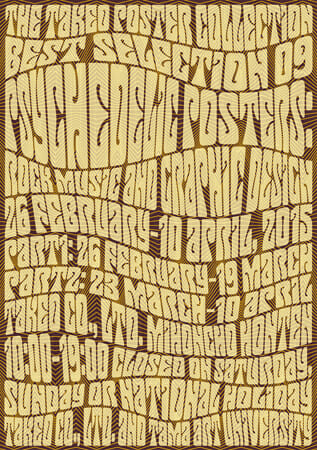 THE TAKEO POSTER COLLECTION
BEST SELECTION 09
PSYCHEDELIC POSTERS
ROCK MUSIC AND GRAPHIC DESIGN
16 FEBRUARY-10 APRIL 2015
PART1: 16 FEBRUARY-19 MARCH
PART2: 23 MARCH-10 APRIL
TAKEO CO., LTD. MIHONCHO HONTEN
10:00-19:00 CLOSED ON SATURDAY
SUNDAY OR NATIONAL HOLIDAY
TAKEO CO., LTD. AND TAMA ART UNIVERSITY